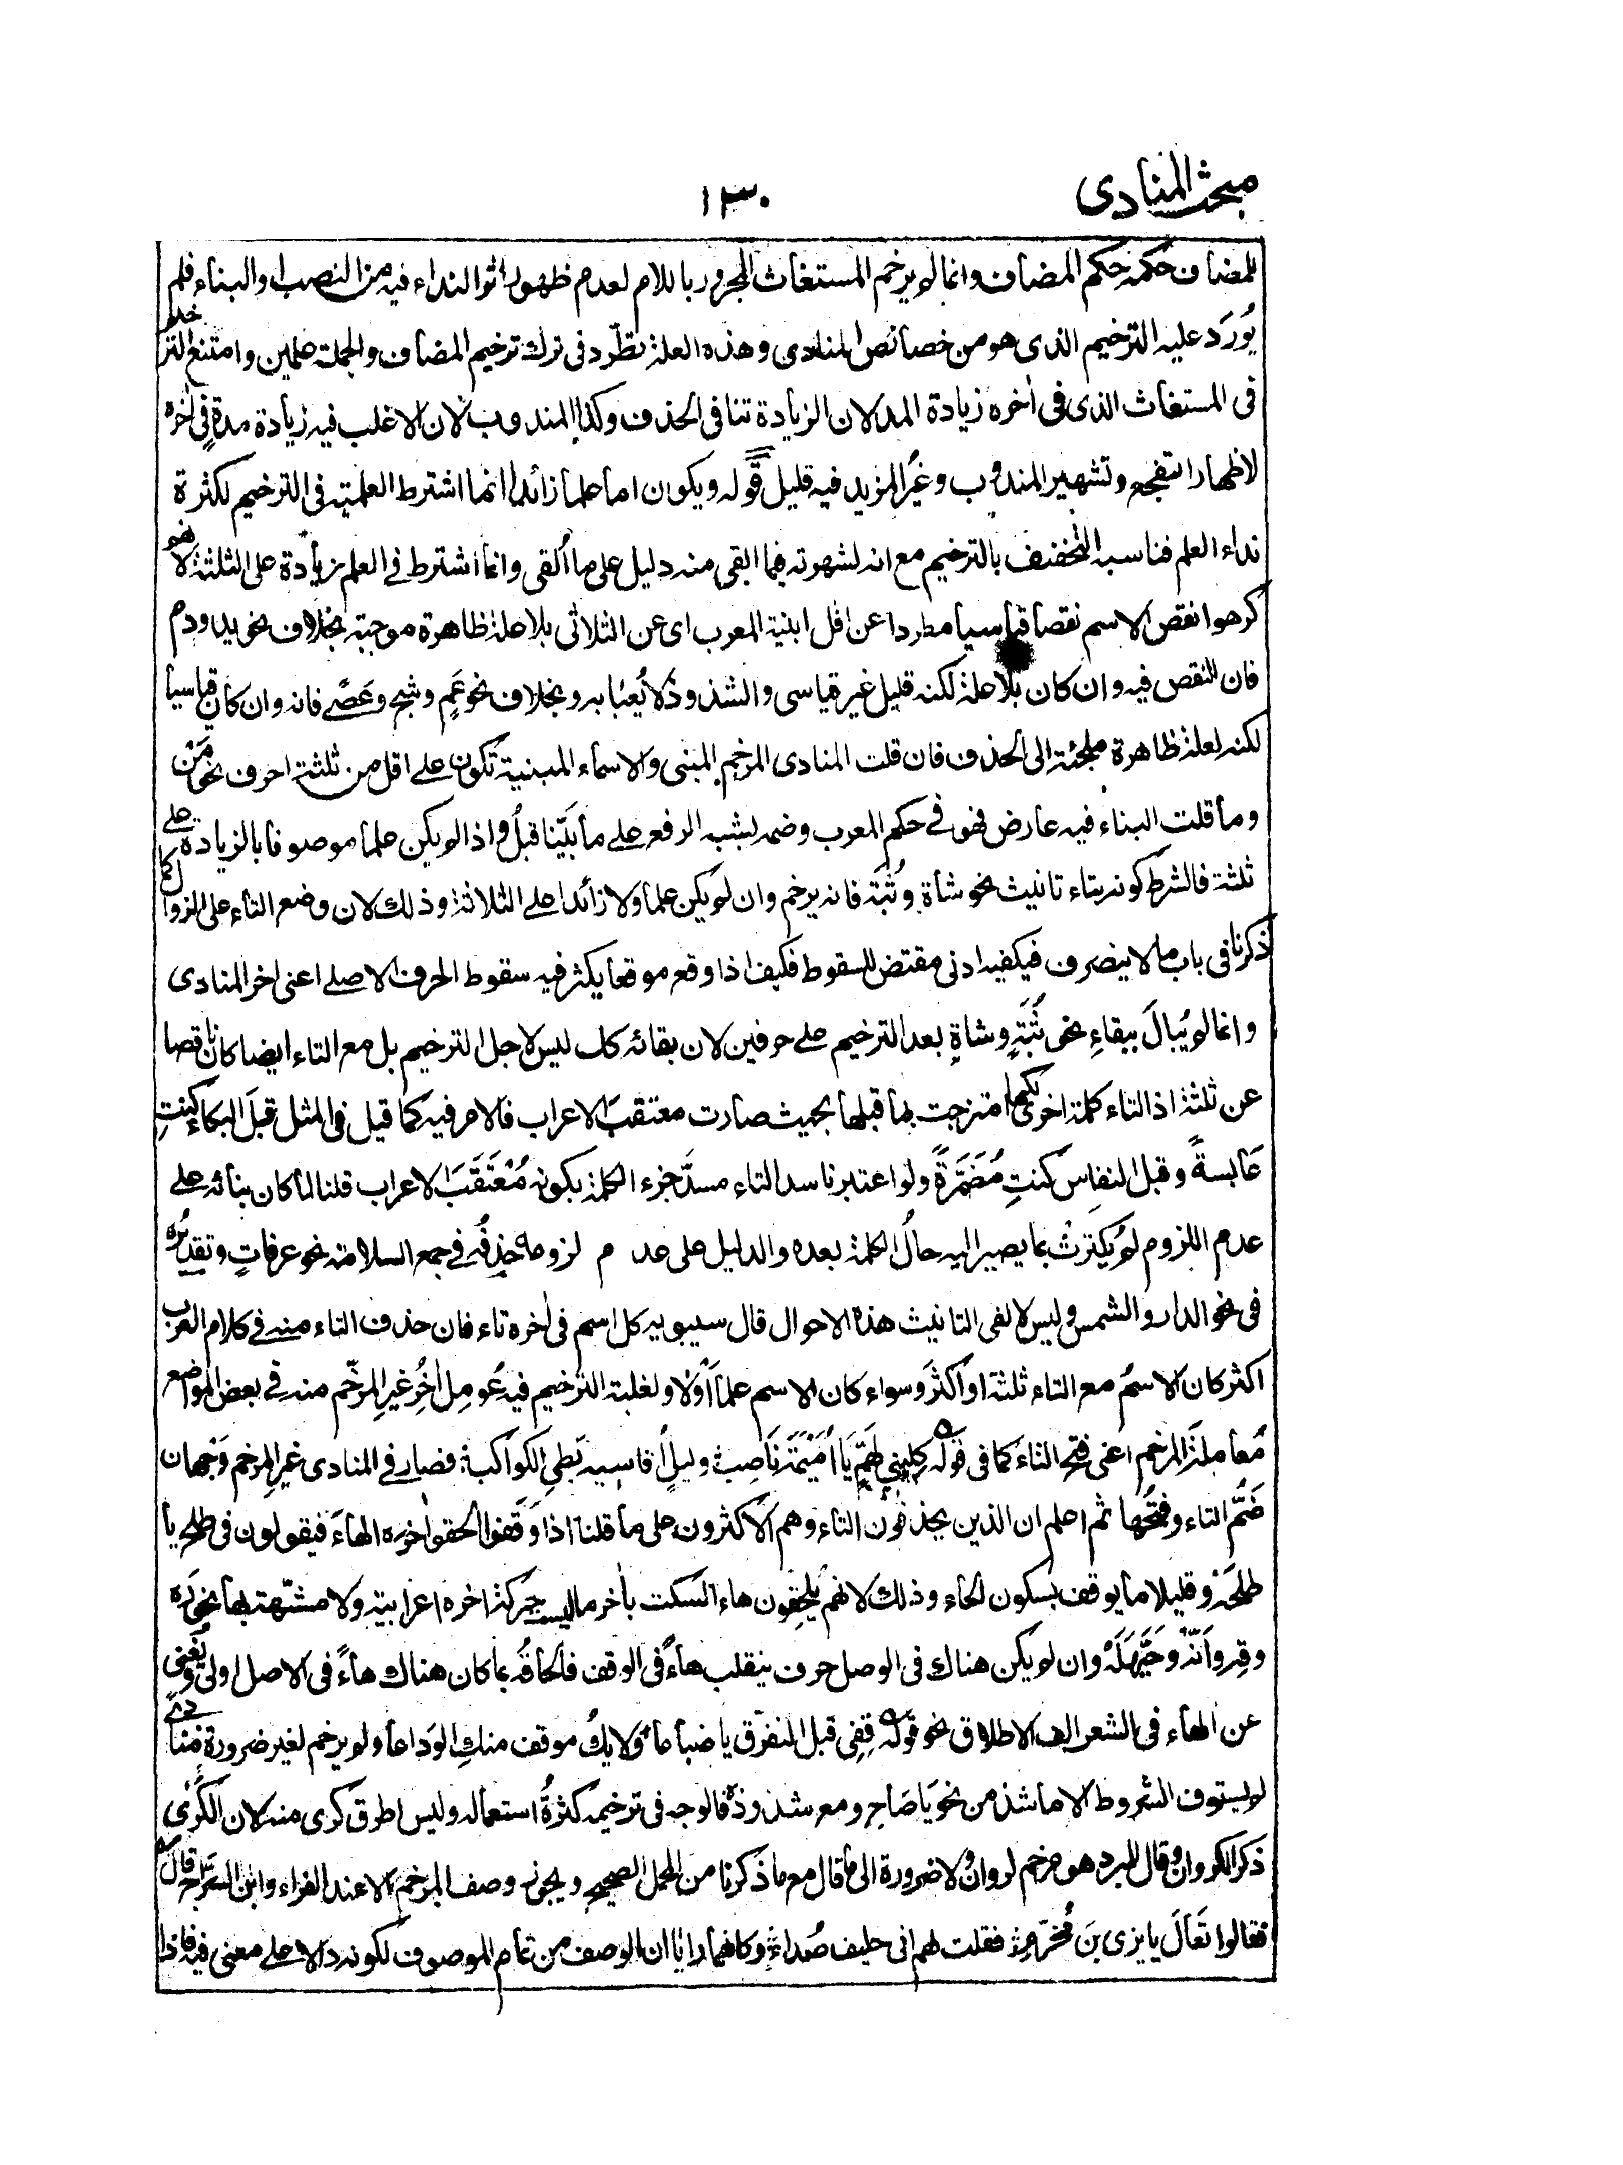 مبحث المنادى
١٣٠
للمضاف حكمه حكم المضاف وانما لم يرخم المستغاث المجرور باللام لعدم ظهور اثر النداء فيه من النصب او البناء فلم
يُورَد عليه الترخيم الذى هو من خصائص المنادى وهذه العلة تطّرد فى ترك ترخيم المضاف والجملة علمين وامتنع الترخيم
فى المستغاث الذى فى اٰخره زيادة المد لان الزيادة تنافى الحذف وكذا المندوب لان الاغلب فيه زيادة مدةٍ فى اٰخره
لاظهار التفجع وتشهير المندوب وغيرُ المزيد فيه قليل قوله ويكون اما علما زائدا انما اشترط العلمية فى الترخيم لكثرة
نداء العلم فناسبه التخفيف بالترخيم مع انه لشهرته فيما القى منه دليل على ما اُلقى وانما اشترط فى العلم زيادة على الثلثة لانهم
كرهوا نقص الاسم نقصا قياسيا مطردا عن اقل ابنية المعرب اى عن الثلاثى بلا علة ظاهرة موجبة بخلاف نحو يد ودم
فان النقص فيه وان كان بلا علة لكنه قليل غير قياسى والشذوذ لا يُعبٲ به وبخلاف نحو عَمٍ وشجٍ وعَصًى فانه وان كان قياسيا
لكنه لعلة ظاهرة ملجئة الى الحذف فان قلت المنادى المرخم المبنى والاسماء المبنية تكون على اقل من ثلثة احرف نحو مَن
وما قلت البناء فيه عارض فهو فى حكم المعرب وضمه يشبه الرفع على ما بَيَّنا قبلُ واذا لم يكن علما موصوفا بالزيادة على
ثلثة فالشرط كونه بتاء تانيث نحو شاة وثُبَة فانه يرخم وان لم يكن علما ولا زائدا على الثلاثة وذلك لان وضع التاء على الزوال كما
ذكرنا فى باب ما لا ينصرف فيكفيه ادنى مقتض للسقوط فكيف اذا وقع موقعا يكثر فيه سقوط الحرف الاصلى اعنى اخر المنادى
وانما لم يُبالَ ببقاءِ نحو ثُبَةٍ وشاةٍ بعد الترخيم على حرفين لان بقائه كك ليس لاجل الترخيم بل مع التاء ايضا كان ناقصا
عن ثلثة اذ التاء كلمة اخرى لكنها امتزجت بما قبلها بحيث صارت معتقبَ الاعراب فالامر فيه كما قيل فى المثل قبلَ البكاء كنتِ
عابسةً وقبل النفاس كنتِ مُصْفَرَّةً ولو اعتبرنا سد التاء مسدَّ جزء الكلمة بكونه مُعْتَقَبَ الاعراب قلنا لما كان بنائه على
عدم اللزوم لم يُكترث بما يصير اليه حالُ الكلمة بعده والدليل على عدم لزومه حذفُه فى جمع السلامة نحو عرفاتٍ وتقديرُه
فى نحو الدار والشمس وليس لالفى التانيث هذه الاحوال قال سيبويه كل اسم فى اٰخره تاء فان حذف التاء منه فى كلام العرب
اكثر كان الاسمُ مع التاء ثلثة او اكثرَ وسواء كان الاسم علما اَوْ لا ولغلبة الترخيم فيه عُومِل اٰخِرُ غيرِ المرخّم منه فى بعض المواضع
مُعاملةَ المرخم اعنى فتح التاءَ كما فى قوله كِلِينى لِهَمٍّ يَا اُمَيْمَةَ نَاصِبٍ وليلٍ اُقاسيه بَطىِ الكواكب فصار فى المنادى غيرِ المرخم وَجهان
ضَمُّ التاء وفتحُها ثم اعلم ان الذين يحذفون التاء وهم الاكثرون على ما قلنا اذا وَقَفوا الحقوا اٰخره الهاءَ فيقولون فى طلحة يا
طلحَهْ وقليلا ما يوقف بسكون الحاء وذلك لانهم يُلحِقون هاء السكت باٰخر ما ليست حركة اٰخره اعرابية ولا مشبّهة بها نحو رَه
وقِه واَنَّهْ وحَيَّهَلَهْ وان لم يكن هناك فى الوصل حرف ينقلب هاءً فى الوقف فالحاقُه بما كان هناك هاءً فى الاصل اولى ويُغنِى
عن الهاء فى الشعر الف الاطلاق نحو قوله قِفِى قبل التفرّق يا ضباعا ولا يكُ موقف منكِ الوَداعا ولم يرخم لغير ضرورة منادى
لم يستوف الشروط الا ما شذ من نحو يَا صَاحِ ومع شذوذه فالوجه فى ترخيمه كثرةُ استعماله وليس اطرق كرى منه لان الكَرٰى
ذَكَر الكروان وقال المبرد هو مرخم كروان ولا ضرورة الى ما قال مع ما ذكرنا من المحمل الصحيح ويجوز وصف المرخم الا عند الفراء وابن السرّاج قال
فقالوا تَعَالَ يا يزى بنَ مُخَرّمٍ فقلت لهم انى حليف صُداءٍ وكانهما رايا ان الوصف من تمام الموصوف لكونه دالا على معنى فيه فاذا